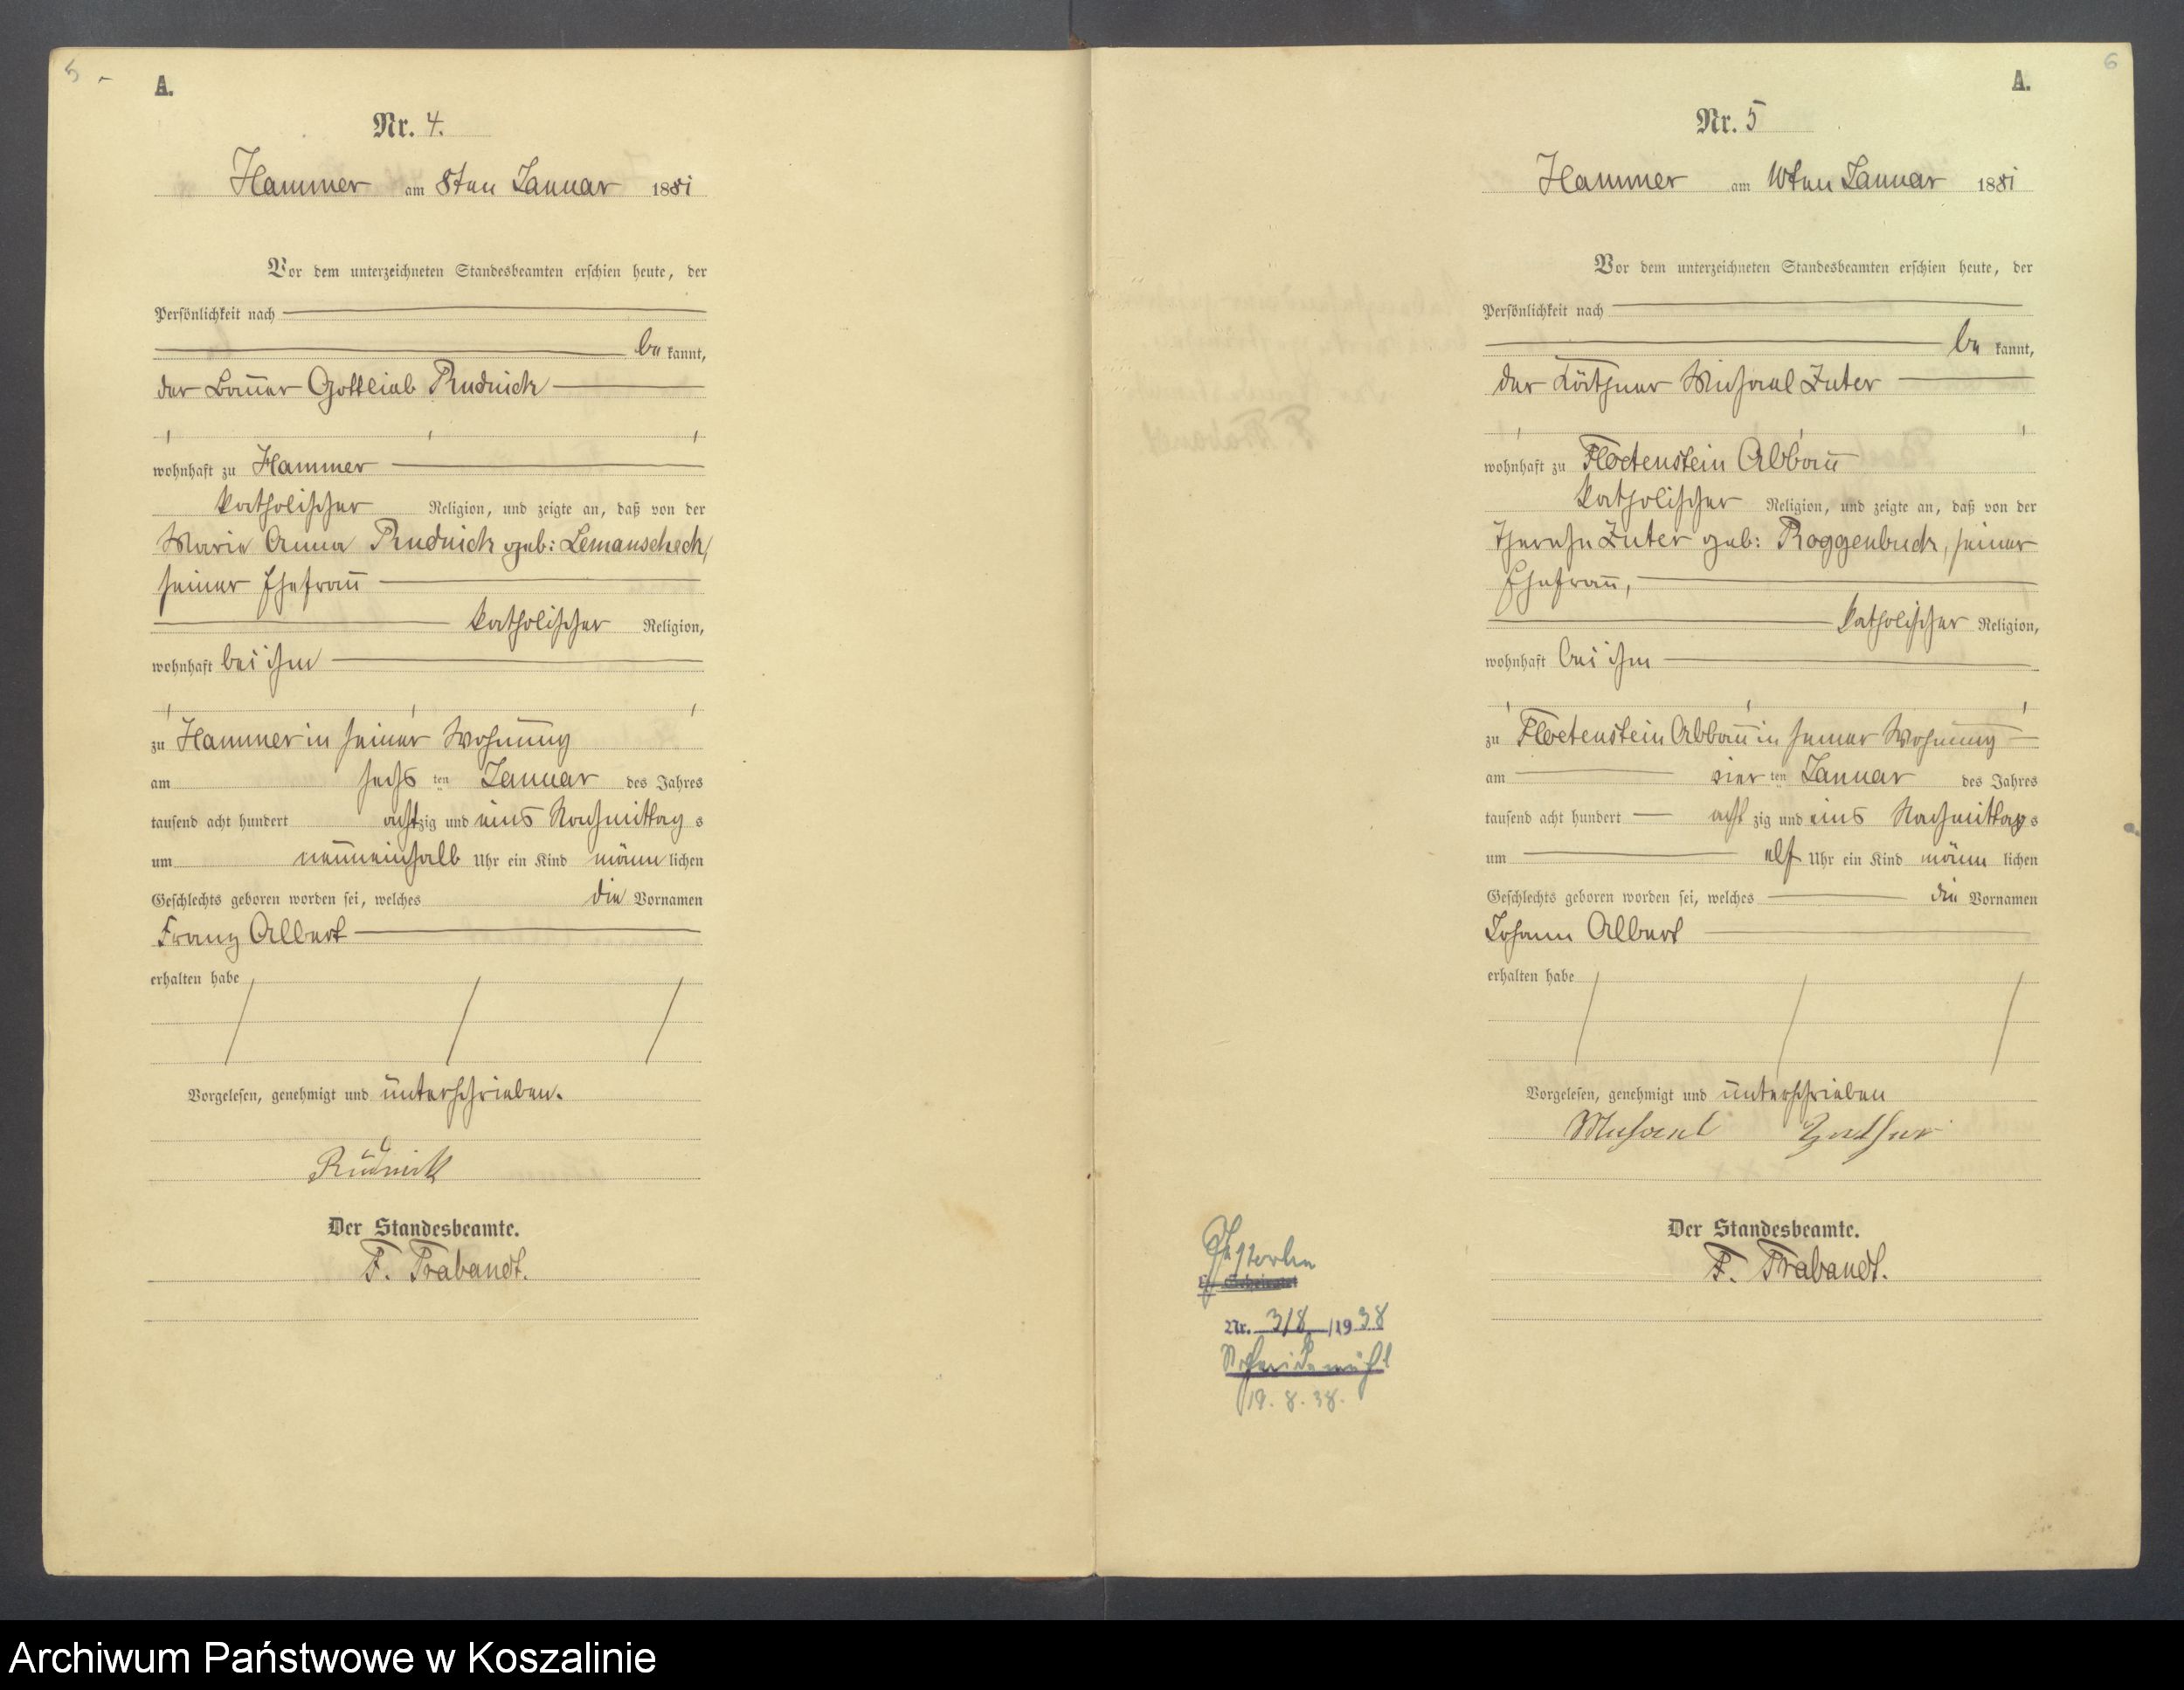 5
A.
Nr. 4.
Hammer am 8ten Januar 1881
Vor dem unterzeichneten Standesbeamten erschien heute, der
Persönlichkeit nach
be kannt,
der Bauer Gottlieb Rudnick
wohnhaft zu Hammer
katholischer Religion, und zeigte an, daß von der
Marie Anna Rudnick geb: Lemanscheck,
seiner Ehefrau
katholischer Religion,
wohnhaft bei ihm
zu Hammer in seiner Wohnung
am sechs ten Januar des Jahres
tausend acht hundert acht zig und eins Nachmittag s
um neuneinhalb Uhr ein Kind männ lichen
Geschlechts geboren worden sei, welches die Vornamen
Franz Albert
erhalten habe
Vorgelesen, genehmigt und unterschrieben.
Rudnick
Der Standesbeamte.
F. Trabandt.
6
A.
Nr. 5
Hammer am 10ten Januar 1881
Vor dem unterzeichneten Standesbeamten erschien heute, der
Persönlichkeit nach
be kannt,
der Käthner Michael Zuter
wohnhaft zu Floetenstein Abbau
katholischer Religion, und zeigte an, daß von der
Therese Zuter geb: Roggenbuck, seiner
Ehefrau,
katholischer Religion,
wohnhaft bei ihm
zu Floetenstein Abbau in seiner Wohnung
am vier ten Januar des Jahres
tausend acht hundert acht zig und eins Nachmittags
um elf Uhr ein Kind männ lichen
Geschlechts geboren worden sei, welches die Vornamen
Johann Albert
erhalten habe
Vorgelesen, genehmigt und unterschrieben
Michael
Der Standesbeamte.
F. Trabandt.
Gestorben
Nr. 318/1938
Schneidemühl
19. 8. 38.
Archiwum Państwowe w Koszalinie